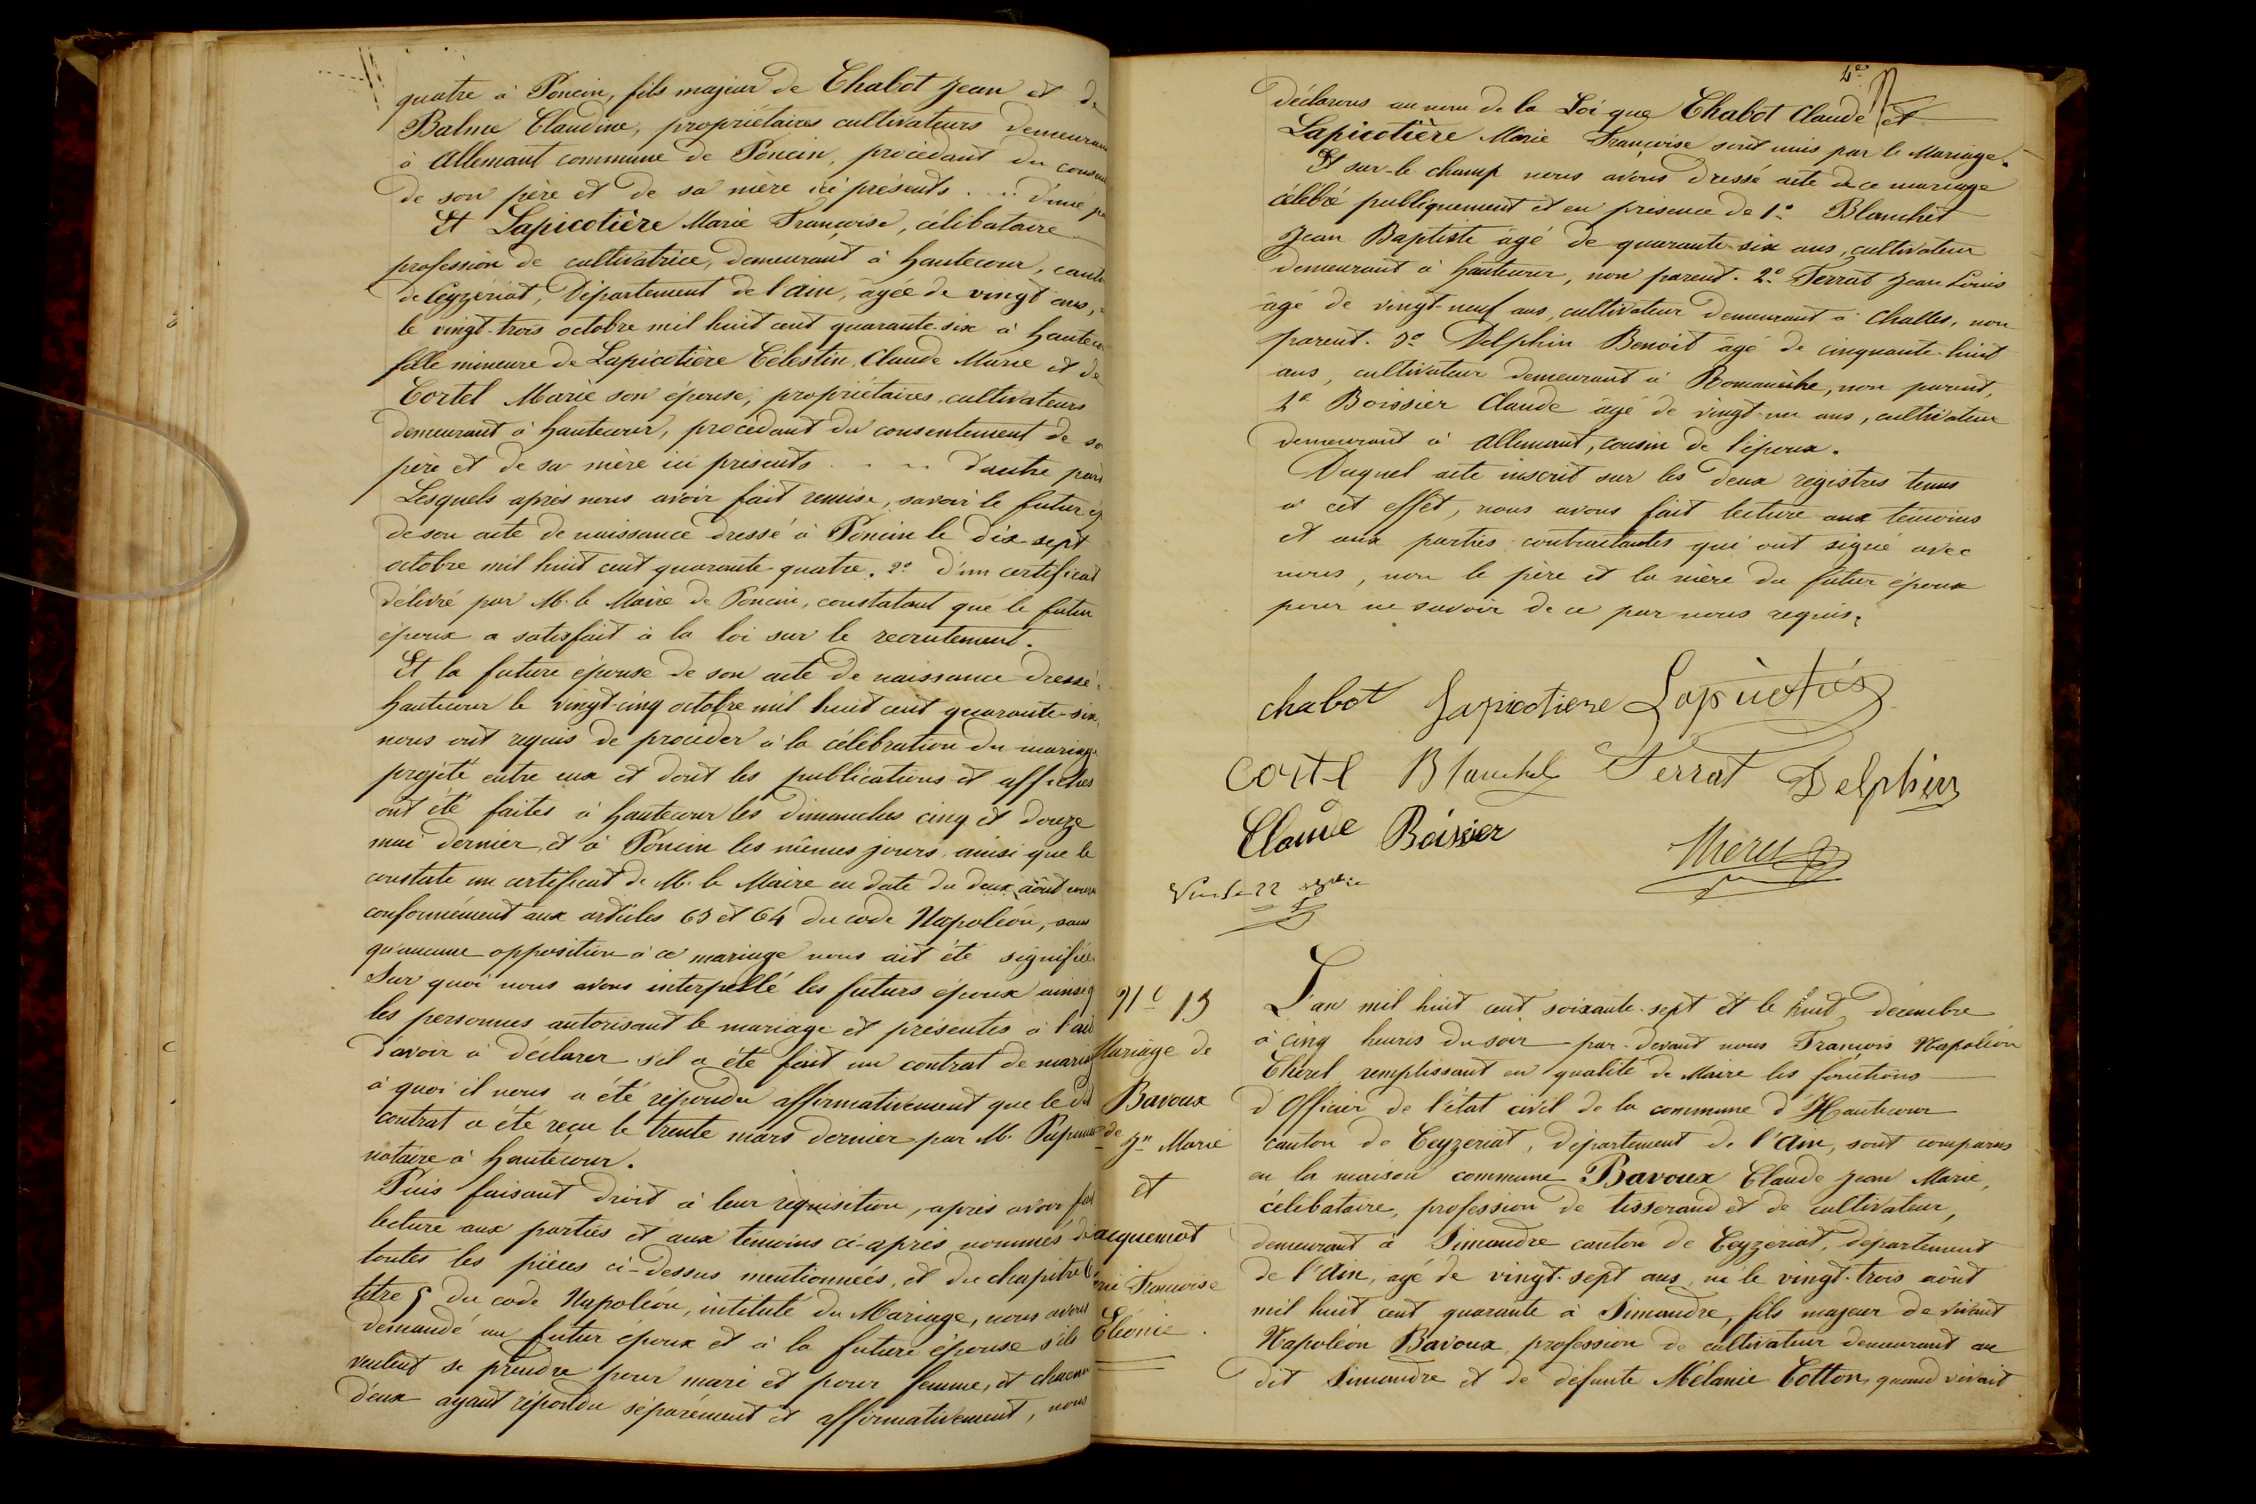 quatre à Poncin, fils majeur de Chabot Jean et de
Balme Claudine, propriétaires cultivateurs demeurant
à Allemant commune de Poncin, procédant du
de son père et de sa mère ici présents . . . d'une
Et Lapicotière Marie Françoise, célibataire
profession de cultivatrice, demeurant à hautecour,
de Ceyzériat, Département de l'ain, agée de vingt ans,
le vingt-trois octobre mil huit cent quarante-six à
fille mineure de Lapicotière Célestin Claude Marie et de
Cortel Marie son épouse, propriétaires cultivateurs
demeurant à hautecour, procédant du consentement de
père et de sa mère ici présents . . . . d'autre part
Lesquels après nous avoir fait remise, savoir le futur
de son acte de naissance dressé à Poncin le dix sept
octobre mil huit cent quarante-quatre. 2° d'un certificat
délivré par M. le Maire de Poncin, constatant que le futur
époux a satisfait à la loi sur le recrutement.
Et la future épouse de son acte de naissance dressé
hautecour le vingt-cinq octobre mil huit cent quarante-six,
nous ont requis de procéder à la célébration du mariage
projeté entre eux et dont les publications et affiches
ont été faites à hautecour les dimanches cinq et douze
mai dernier, et à Poncin les mêmes jours, ainsi que le
constate un certificat de M. le Maire en date du deux août
conformément aux articles 63 et 64 du code Napoléon, sans
qu'aucune opposition à ce mariage nous ait été signifiée
Sur quoi nous avons interpellé les futurs époux
les personnes autorisant le mariage et présentes à
d'avoir à déclarer s'il a été fait un contrat de mariage
à quoi il nous a été répondu affirmativement que le dit
contrat a été reçu le trente mars dernier par M.
notaire à hautecour.
Puis faisant droit à leur réquisition, après avoir
lecture aux parties et aux témoins ci-après nommés
toutes les pièces ci-dessus mentionnées, et du chapitre 6
titre 5 du code Napoléon, intitulé du Mariage, nous avons
demandé au futur époux et à la future épouse s'ils
veulent se prendre pour mari et pour femme, et chacun
d'eux ayant répondu séparément et affirmativement, nous
déclarons au nom de la Loi que Chabot Claude et
Lapicotière Marie Françoise sont unis par le Mariage.
Et sur-le champ nous avons dressé acte de ce mariage
célébré publiquement et en présence de 1° Blanchet
Jean Baptiste âgé de quarante-six ans, cultivateur
demeurant à hautecour, non parent. 2° Ferrat Jean Louis
âgé de vingt-neuf ans, cultivateur demeurant à Challes, non
parent. 3° Delphin Benoit âgé de cinquante-huit
ans, cultivateur demeurant à Romanèche, non parent,
4° Boissier Claude âgé de vingt-un ans, cultivateur
demeurant à Allemant, cousin de l'époux.
Duquel acte inscrit sur les deux registres tenus
à cet effet, nous avons fait lecture aux témoins
et aux parties contractantes qui ont signé avec
nous, non le père et la mère du futur époux
pour ne savoir de ce par nous requis.
chabot Lapicotiere
Cortel Blanchet Ferrat Delphin
Claude Boissier
N° 13
Mariage de
Bavoux
de Jn Marie
et
acquemot
Françoise
Cléonie.
L'an mil huit cent soixante-sept et le huit décembre
à cinq heures du soir par-devant nous François Napoléon
remplissant en qualité de Maire les fonctions
d'Officier de l'état civil de la commune d'Hautecour
canton de Ceyzériat, département de l'Ain, sont comparus
en la maison commune Bavoux Claude Jean Marie,
célibataire, profession de tisserand et de cultivateur,
demeurant à Simandre canton de Ceyzériat, département
de l'Ain, agé de vingt-sept ans, né le vingt-trois août
mil huit cent quarante à Simandre, fils majeur de vivant
Napoléon Bavoux, profession de cultivateur demeurant au
dit Simandre et de défunte Mélanie Cotton, quand vivait